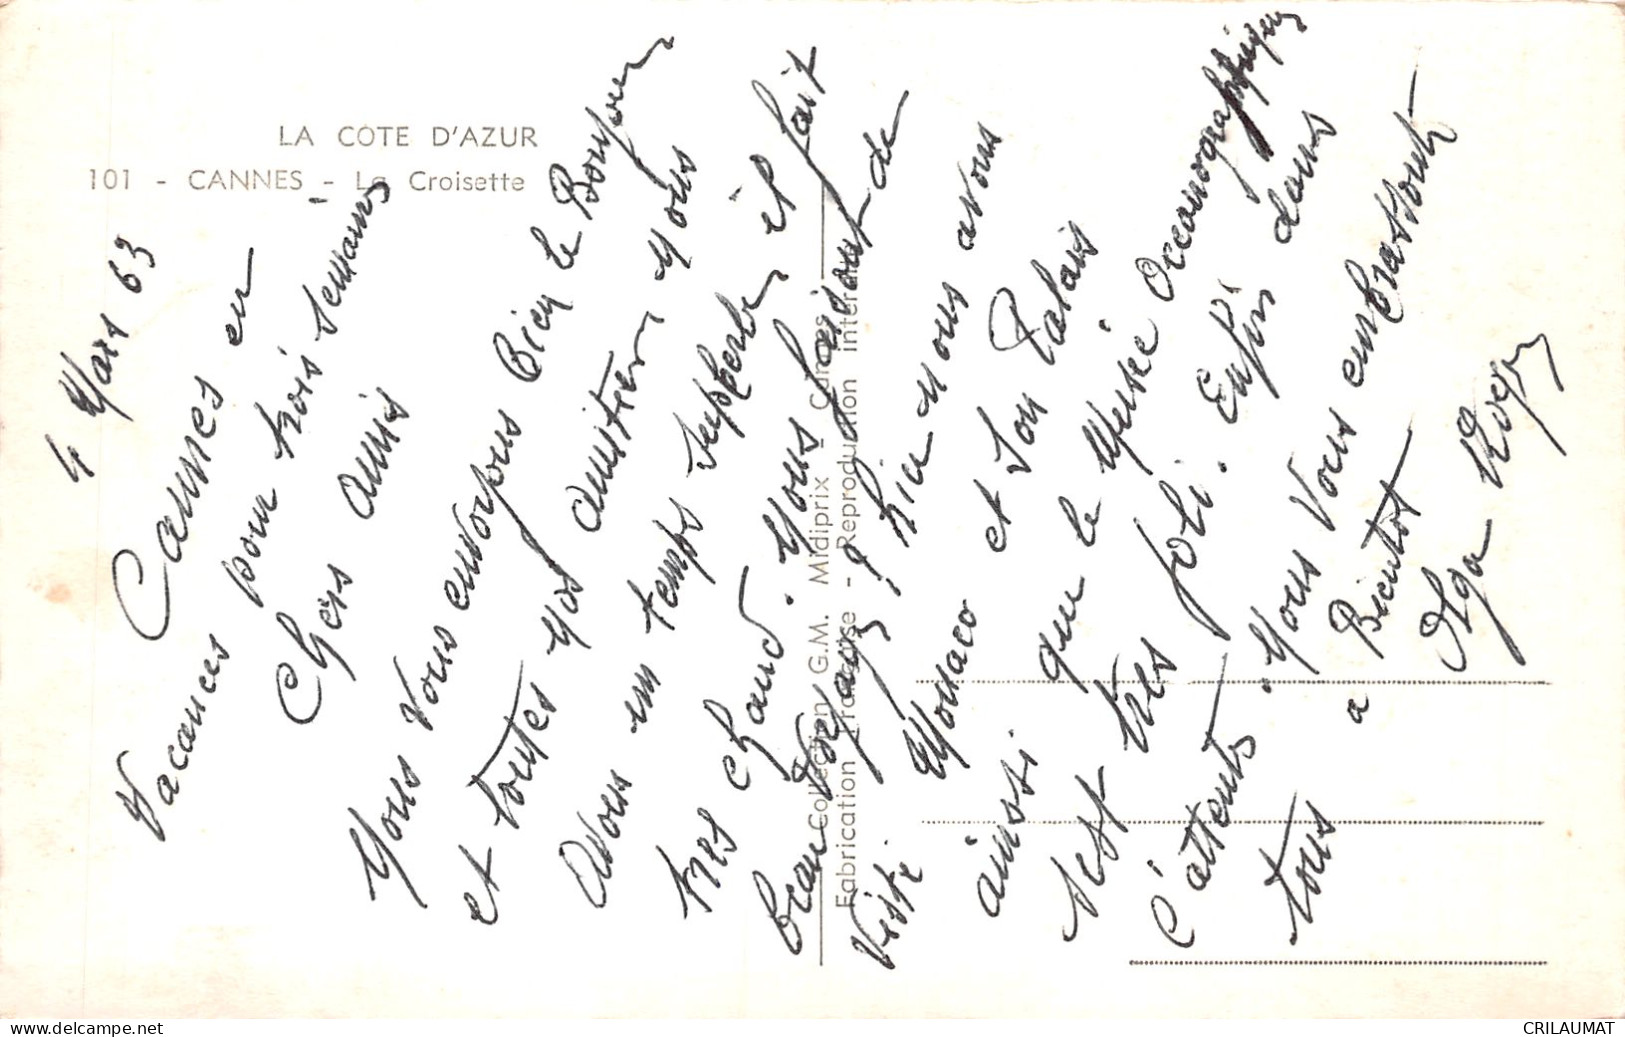 LA COTE D'AZUR
101 - CANNES - La Croisette
4 Mars 63
Cannes en
Vacances pour trois semaines
Chers amis
Nous vous envoyons bien le Bonjour
et toutes nos amitiers Nous
Avons un temps supperbe, il fait
tres chaud. Nous faisons de
beau voyage, hier nous avons
visité Monaco et son Palais
ainsi que le Musée Oceanographique
s'est très joli. Enfin dans
l'attente. Nous vous embrassons
tous
a Bientot
Olga Roger
Collection G.M. Midiprix - Cannes
Fabrication Française - Reproduction interd
delcampe.net
CRILAUMAT